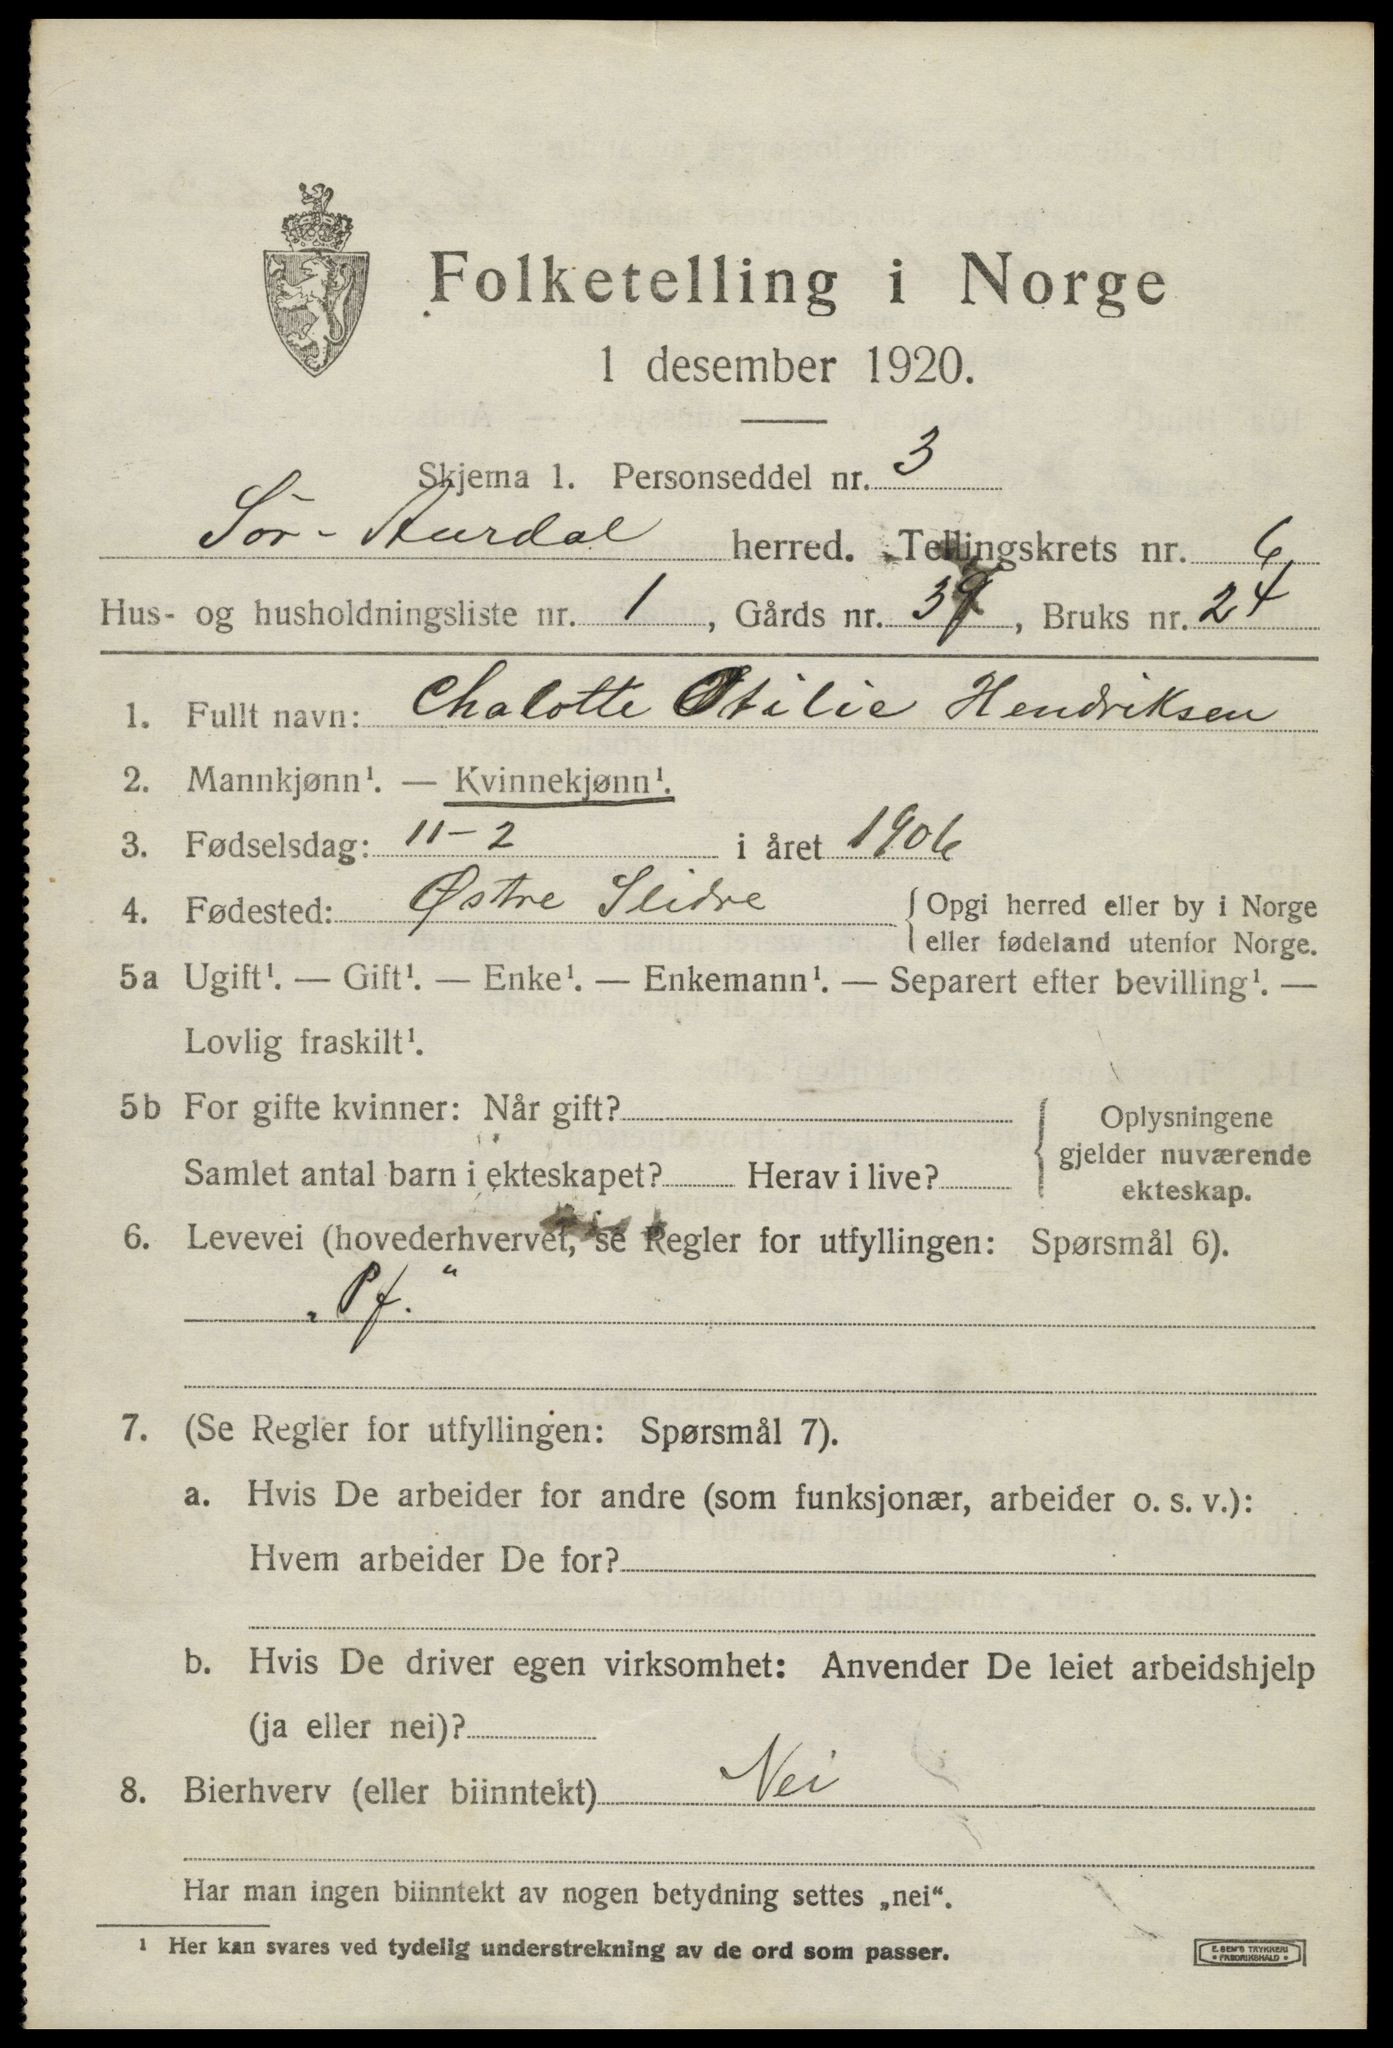 Folketelling i Norge
1 desember 1920.
Skjema 1. Personseddel nr. 3
Sör-Aurdal herred. Tellingskrets nr. 6
Hus- og husholdningsliste nr. 1, Gårds nr. 39, Bruks nr. 24
1. Fullt navn: Chalotte Otilie Hendriksen
2. Mannkjønn¹. — Kvinnekjønn¹.
3. Fødselsdag: 11-2 i året 1906
4. Fødested: Østre Slidre { Opgi herred eller by i Norge
eller fødeland utenfor Norge.
5a Ugift¹. — Gift¹. — Enke¹. — Enkemann¹. — Separert efter bevilling¹. —
Lovlig fraskilt¹.
5b For gifte kvinner: Når gift?
Samlet antal barn i ekteskapet? Herav i live?
{ Oplysningene
gjelder nuværende
ekteskap.
6. Levevei (hovederhvervet, se Regler for utfyllingen: Spørsmål 6).
„Pf.“
7. (Se Regler for utfyllingen: Spørsmål 7).
a. Hvis De arbeider for andre (som funksjonær, arbeider o. s. v.):
Hvem arbeider De for?
b. Hvis De driver egen virksomhet: Anvender De leiet arbeidshjelp
(ja eller nei)?
8. Bierhverv (eller biinntekt) Nei
Har man ingen biinntekt av nogen betydning settes „nei“.
¹ Her kan svares ved tydelig understrekning av de ord som passer.
E. SEM'S TRYKKERI
• FREDRIKSHALD •